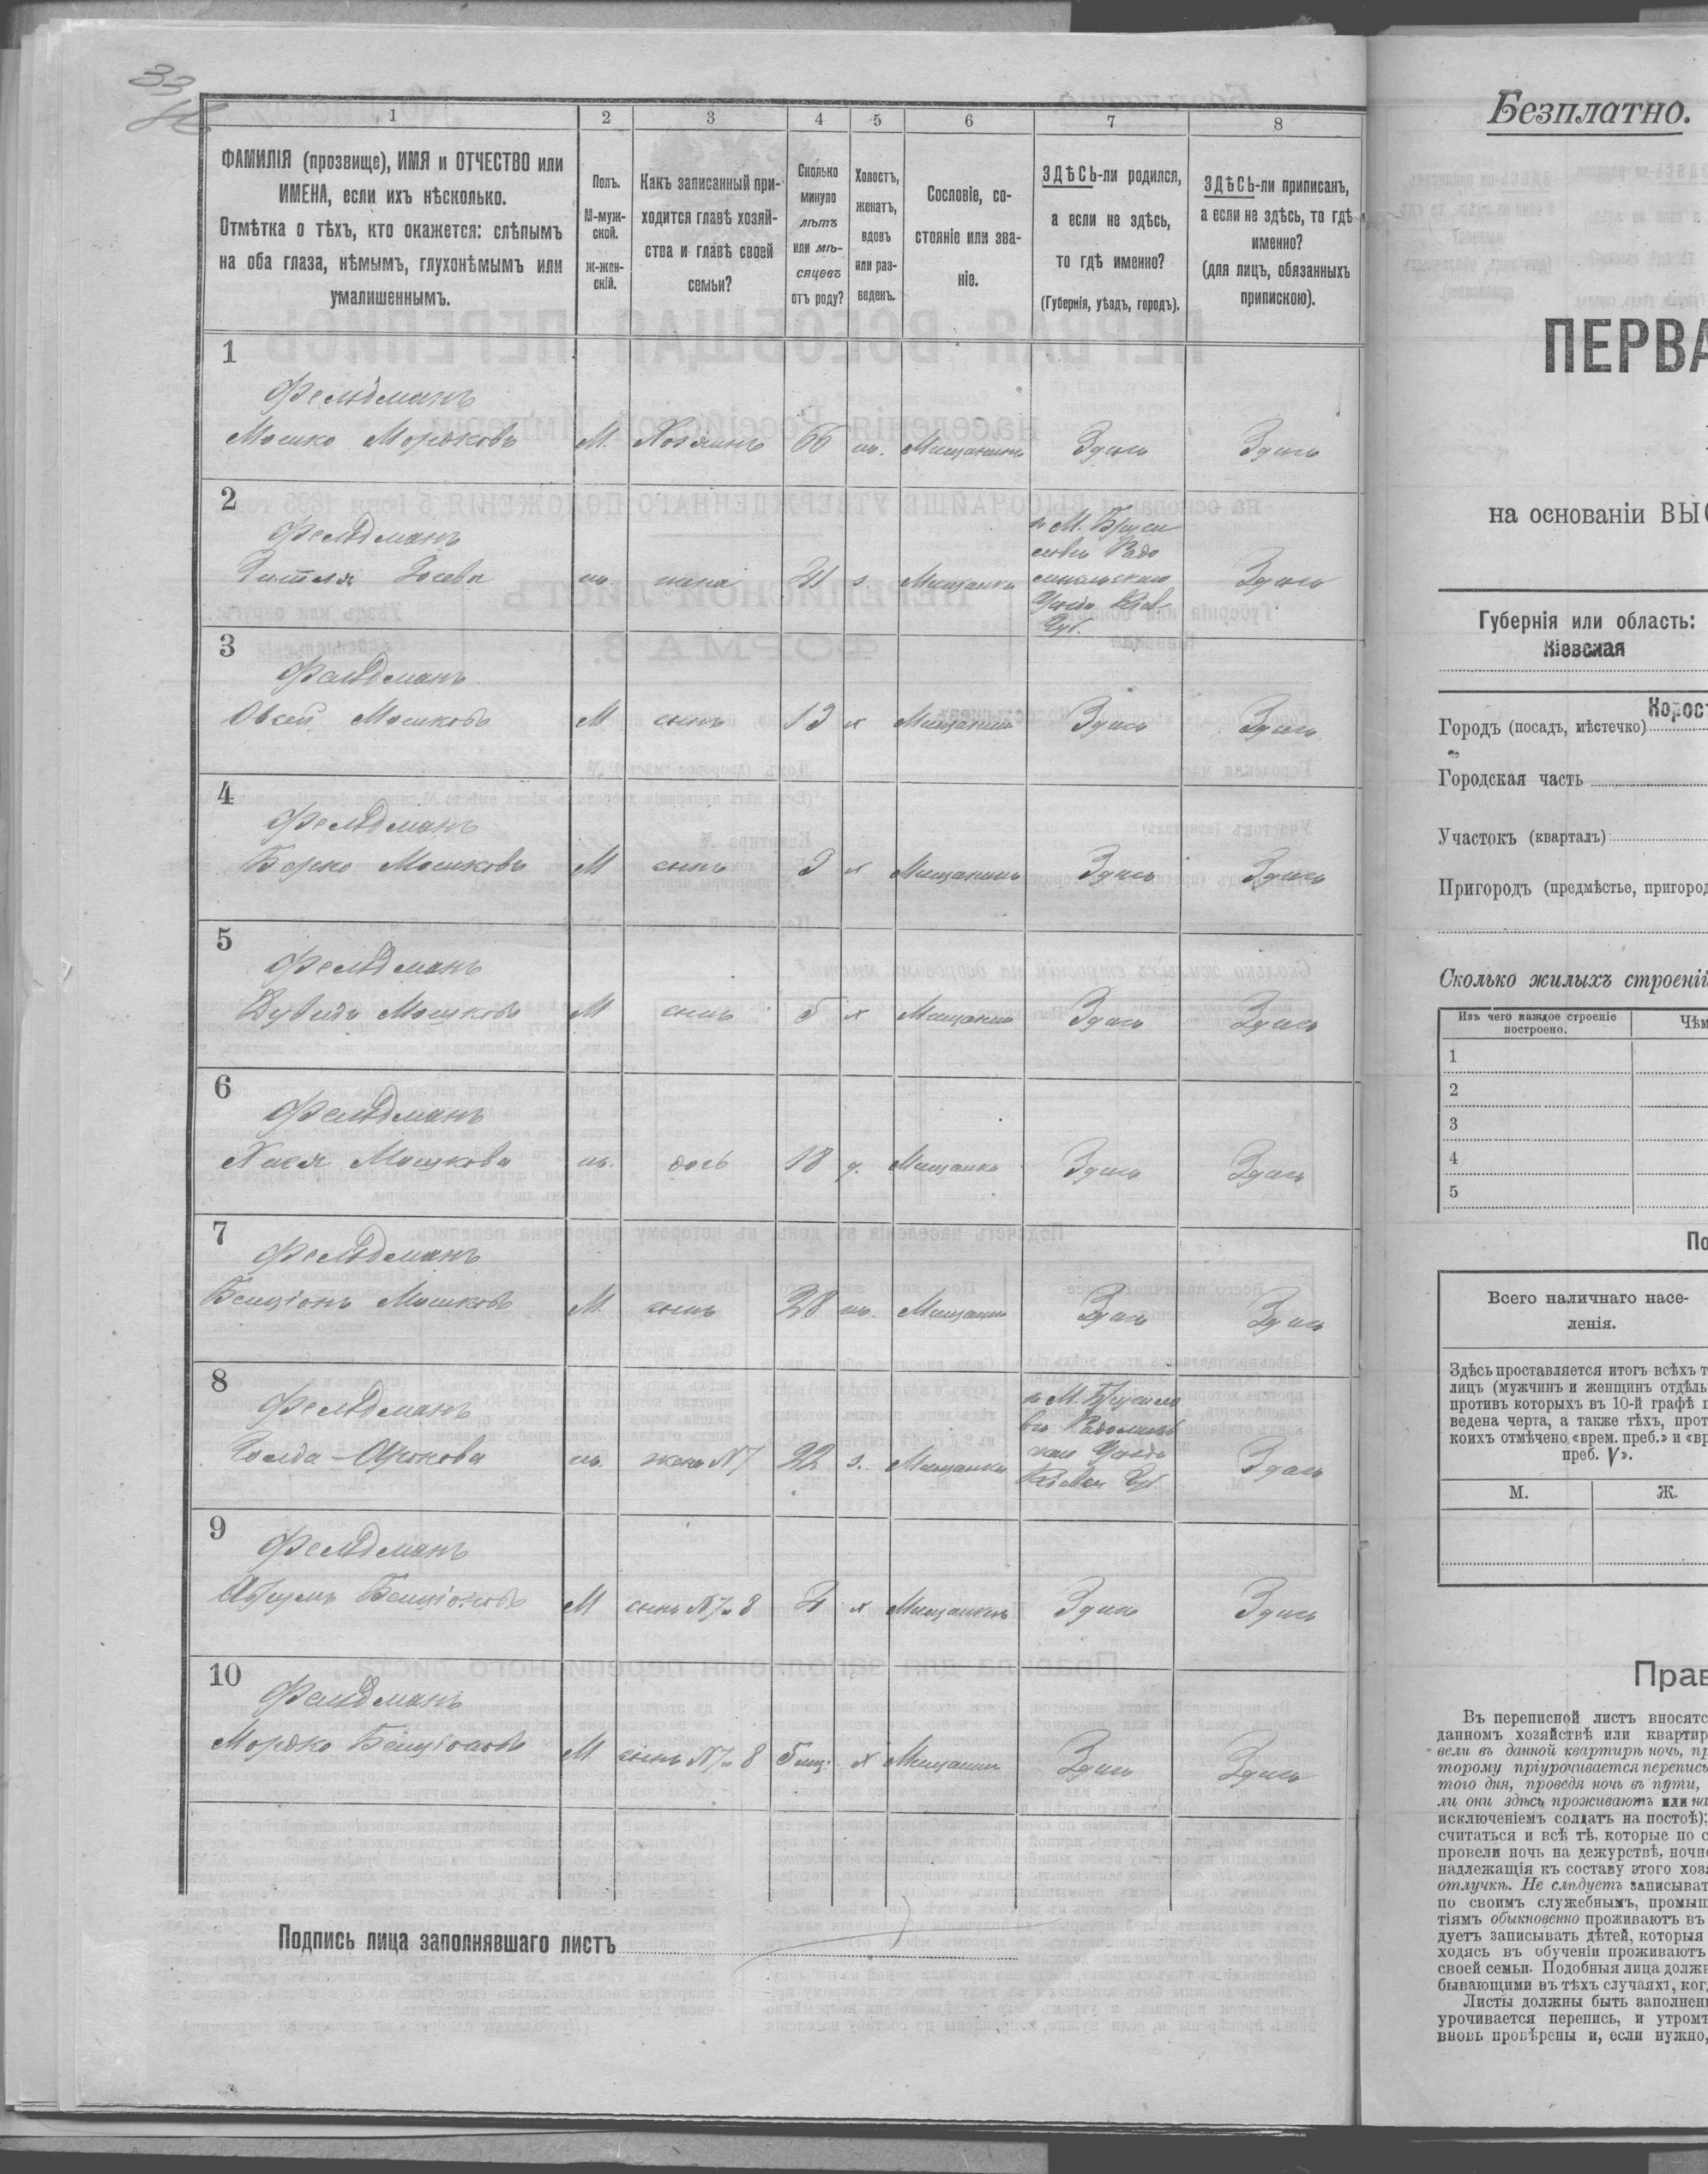 33
1
2
3
4
5
6
7
8
ФАМИЛІЯ (прозвище), ИМЯ и ОТЧЕСТВО или
ИМЕНА, если ихъ нѣсколько.
Отмѣтка о тѣхъ, кто окажется: слѣпымъ
на оба глаза, нѣмымъ, глухонѣмымъ или
умалишеннымъ.
Полъ.
М-муж-
ской.
ж-жен-
скій.
Какъ записанный при-
ходится главѣ хозяй-
ства и главѣ своей
семьи?
Сколько
минуло
лѣтъ
или мѣ-
сяцевъ
отъ роду?
Холостъ,
женатъ,
вдовъ
или раз-
веденъ.
Сословіе, со-
стояніе или зва-
ніе.
ЗДѢСЬ-ли родился,
а если не здѣсь,
то гдѣ именно?
(Губернія, уѣздъ, городъ).
ЗДѢСЬ-ли приписанъ,
а если не здѣсь, то гдѣ
именно?
(для лицъ, обязанныхъ
припискою).
1
Фельдманъ
Мошко Мордковъ М. Хозяинъ 66 ж. Мещанинъ Здѣсь Здѣсь
2
Фельдманъ
ж. жена з. Мещанка Здѣсь
в М. Бруси
ловѣ Радо
мысльскаго
Уѣзда Кіев.
Губ.
3
Фельдманъ
Овсей Мошковъ М сынъ 13 х Мещанинъ Здѣсь Здѣсь
4
Фельдманъ
Берко Мошковъ М сынъ х Мещанинъ Здѣсь Здѣсь
5
Фельдманъ
Дувидъ Мошковъ М сынъ 5 х Мещанинъ Здѣсь Здѣсь
6
Фельдманъ
Хася Мошкова ж. дочь 18 д. Мещанка Здѣсь Здѣсь
7
Фельдманъ
Бенціонъ Мошковъ М сынъ 28 ж. Мещанинъ Здѣсь Здѣсь
8
Фельдманъ
Голда Аронова ж. жена N7 22 з. Мещанка Здѣсь
в М. Брусило
вѣ Радомысль
скаго Уѣзда
Кіевск Губ.
9
Фельдманъ
Абрумъ Бенціоновъ М сынъ N7 и 8 х Мещанинъ Здѣсь Здѣсь
10
Фельдманъ
Мордко Бенціоновъ М сынъ N7 и 8 5 мц. х Мещанинъ Здѣсь Здѣсь
Подпись лица заполнявшаго листъ
Безплатно.
ПЕРВА
на основаніи ВЫС
Губернія или область:
Кіевская
Корос
Городъ (посадъ, мѣстечко)
Городская часть
Участокъ (кварталъ)
Пригородъ (предмѣстье, пригород
Сколько жилыхъ строеній
Изъ чего каждое строеніе
построено.
Чѣм
1
2
3
4
5
По
Всего наличнаго насе-
ленія.
Здѣсь проставляется итогъ всѣхъ т
лицъ (мужчинъ и женщинъ отдѣль
противъ которыхъ въ 10-й графѣ п
ведена черта, а также тѣхъ, прот
коихъ отмѣчено «врем. преб.» и «вр
преб. V».
М.
Ж.
Прав
Въ переписной листъ вносятс
данномъ хозяйствѣ или квартир
вели въ данной квартирѣ ночь, пр
торому пріурочивается перепись
того дня, проведя ночь въ пути,
ли они здѣсь проживаютъ или на
исключеніемъ солдатъ на постоѣ);
считаться и всѣ тѣ, которые по с
провели ночь на дежурствѣ, ночно
надлежащія къ составу этого хозя
отлучкѣ. Не слѣдуетъ записыват
по своимъ служебнымъ, промыш
тіямъ обыкновенно проживаютъ въ
дуетъ записывать дѣтей, которыя
ходясь въ обученіи проживаютъ
своей семьи. Подобныя лица должн
бывающими въ тѣхъ случаяхъ, ког
Листы должны быть заполнен
урочивается перепись, и утромъ
вновь провѣрены и, если нужно,